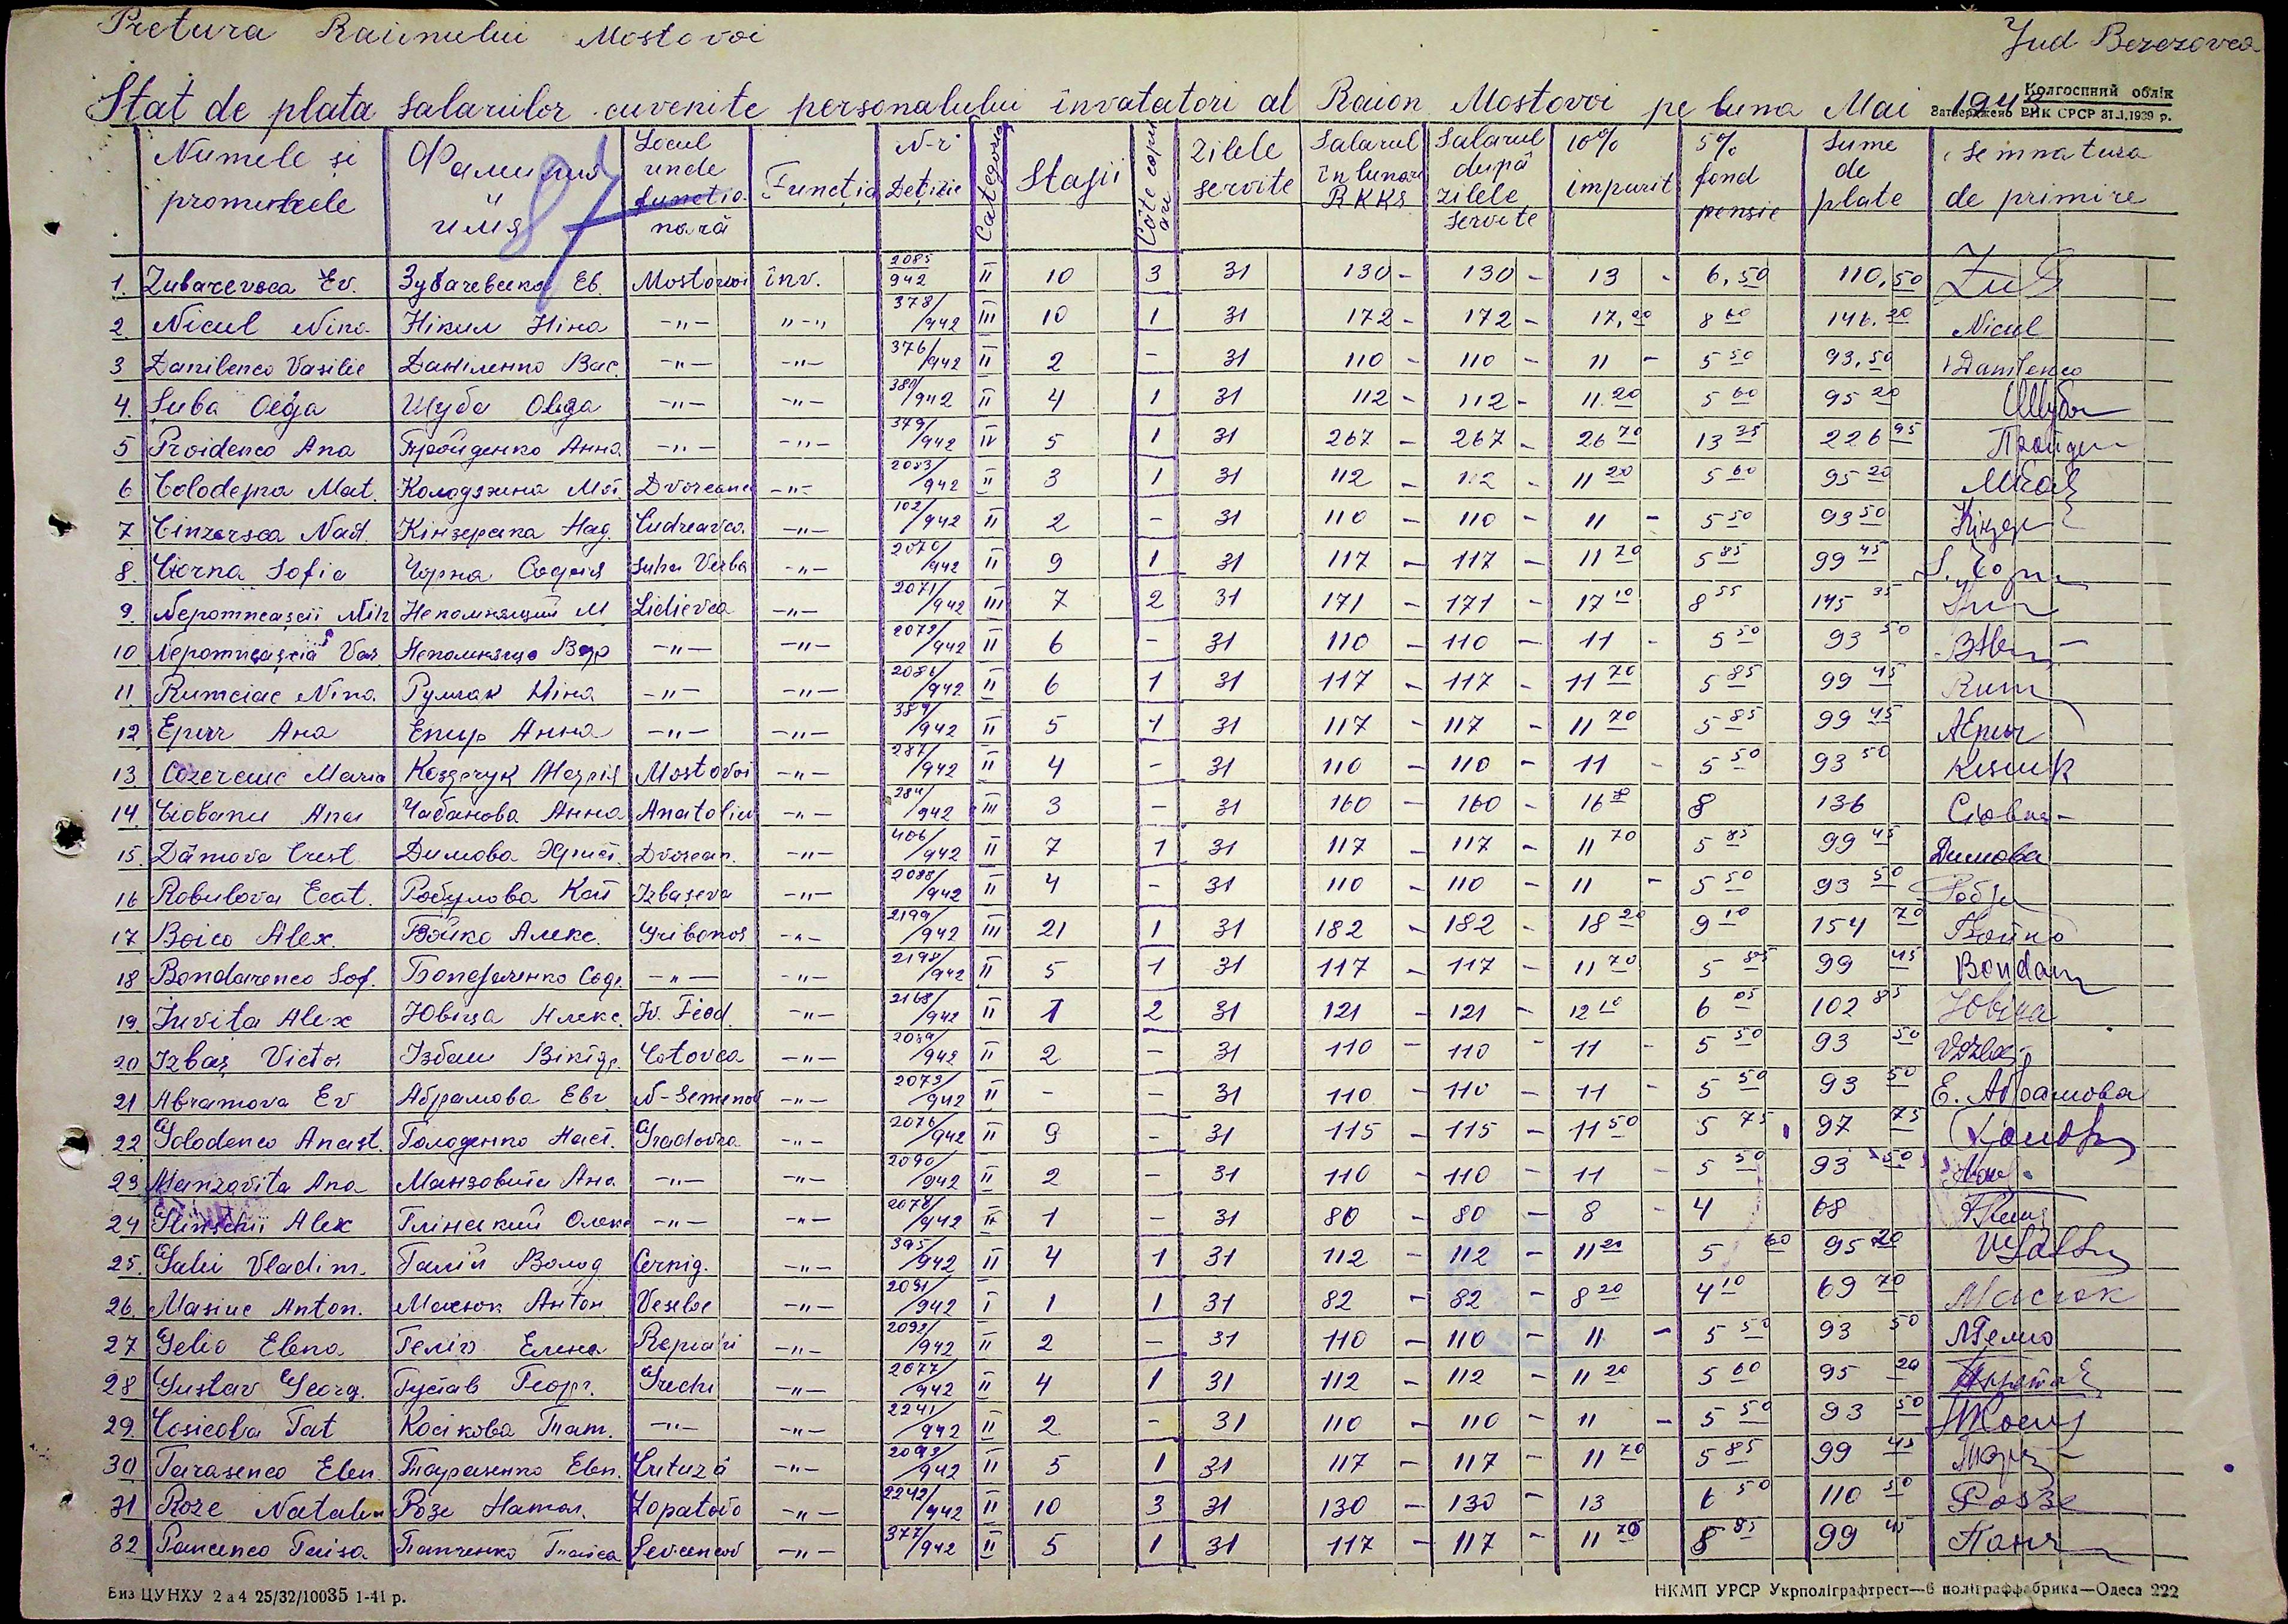 Pretura Raiinului Mostovoi
Jud Berezovca
Stat de plata salariilor cuvenite personalului învatatori al Raion Mostovoi pe luna Mai 1942
Колгоспний облік
Затверджено РНК СРСР 31.1.1939 р.
Numele și promumele | Фамилия и имя | Locul unde functio nară | Funcția | N-r Detizie | Categoria | Stajii | Câte copii are | Zilele servite | Salarul în lunar RKKS | Salarul după zilele servite | 10% impurit | 5% fond pensie | Sume de plate | Semnatura de primire
87
1. Zubarevsca Ev. Зубаревська Ев. Mostovoi înv. 2085/942 II 10 3 31 130 - 130 - 13 - 6,50 110,50
2. Nicul Nina Нікул Ніна -"- "-" 378/942 III 10 1 31 172 - 172 - 17,20 8 60 146.20 Nicul
3 Danilenco Vasilie Даніленко Вас. -"- -"- 376/942 II 2 - 31 110 - 110 - 11 - 5 50 93,50 Danilenco
4. Suba Olga Шуба Ольга -"- -"- 380/942 II 4 1 31 112 - 112 - 11.20 5 60 95 20 Шуба
5 Proidenco Ana Пройденко Анна -"- -"- 379/942 IV 5 1 31 267 - 267 - 26 70 13 35 226 95 Пройден
6 Colodejna Mat. Колодяжна Мот. Dvoreanc -"- 2083/942 II 3 1 31 112 - 112 - 11 20 5 60 95 20
7 Cinzersca Nad. Кінзерська Над. Cudreavca -"- 102/942 II 2 - 31 110 - 110 - 11 - 5 50 93 50
8. Ciorna Sofia Чорна Софія Suha Verba -"- 2070/942 II 9 1 31 117 - 117 - 11 70 5 85 99 45
9. Nepomneașcii Mih Непомнящий М Lidievca -"- 2071/942 III 7 2 31 171 - 171 - 17 10 8 55 145 35
10 Nepomneașcia Var. Непомняща Вар -"- -"- 2072/942 II 6 - 31 110 - 110 - 11 - 5 50 93 50
11 Rumciac Nina Румчак Ніна -"- -"- 2086/942 II 6 1 31 117 - 117 - 11 70 5 85 99 45 Rum
12 Epur Ана Епур Анна -"- -"- 389/942 II 5 1 31 117 - 117 - 11 70 5 85 99 45
13. Cozerciuc Maria Козерчук Марія Mostovoi -"- 287/942 II 4 - 31 110 - 110 - 11 - 5 50 93 50
14. Ciobanu Ana Чабанова Анна Anatoliev -"- 284/942 III 3 - 31 160 - 160 - 16 8 136
15. Dămova Crest Димова Христ. Dvorean. -"- 406/942 II 7 1 31 117 - 117 - 11 70 5 85 99 45 Димова
16 Robulova Ecat. Робулова Кат Izbașeva -"- 2088/942 II 4 - 31 110 - 110 - 11 - 5 50 93 50
17 Boico Alex. Бойко Алекс. Gribonos -"- 2199/942 III 21 1 31 182 - 182 - 18 20 9 10 154 70 Бойко
18 Bondarenco Sof. Бондаренко Соф. -"- -"- 2198/942 II 5 1 31 117 - 117 - 11 70 5 85 99 45 Bondar
19. Iuvița Alex Ювіца Алекс. Iv. Feod. -"- 2168/942 II 1 2 31 121 - 121 - 12 10 6 05 102 85 Ювіца
20 Izbaș Victor Ізбаш Віктор Cotovca -"- 2089/942 II 2 - 31 110 - 110 - 11 - 5 50 93 50
21 Abramova Ev Абрамова Евг N-Semenov -"- 2073/942 II - - 31 110 - 110 - 11 - 5 50 93 50 Е. Абрамова
22 Golodenco Anast. Голоденко Наст. Gradovca -"- 2076/942 II 9 - 31 115 - 115 - 11 50 5 75 97 75
23 Manzavita Ana Манзовита Ана -"- -"- 2090/942 II 2 - 31 110 - 110 - 11 - 5 50 93 50
24 Glinschii Alex Глінський Олекс -"- -"- 2078/942 II 1 - 31 80 - 80 - 8 - 4 68
25. Galii Vladim. Галій Волод Cernig. -"- 395/942 II 4 1 31 112 - 112 - 11 20 5 60 95 20
26. Masiuc Anton. Масюк Антон Veseloe -"- 2091/942 I 1 1 31 82 - 82 - 8 20 4 10 69 70 Масюк
27 Gelio Elena Геліо Елена Repiahi -"- 2092/942 II 2 - 31 110 - 110 - 11 - 5 50 93 50
28 Gustav Georg. Густав Георг. Grechi -"- 2077/942 II 4 1 31 112 - 112 - 11 20 5 60 95 20
29. Cosicova Tat Косікова Тат. -"- -"- 2241/942 II 2 - 31 110 - 110 - 11 - 5 50 93 50
30 Tarasenco Elen. Тарасенко Елен. Cutuză -"- 2093/942 II 5 1 31 117 - 117 - 11 70 5 85 99 45
31 Roze Natalia Розе Натал. Lopatovo -"- 2242/942 II 10 3 31 130 - 130 - 13 6 50 110 50
32 Pancenco Taisa Панченко Таиса Sevcencov -"- 377/942 II 5 1 31 117 - 117 - 11 70 5 85 99 45
Биз ЦУНХУ 2 а 4 25/32/10035 1-41 р.
НКМП УРСР Укрполіграфтрест—6 поліграффабрика—Одеса 222